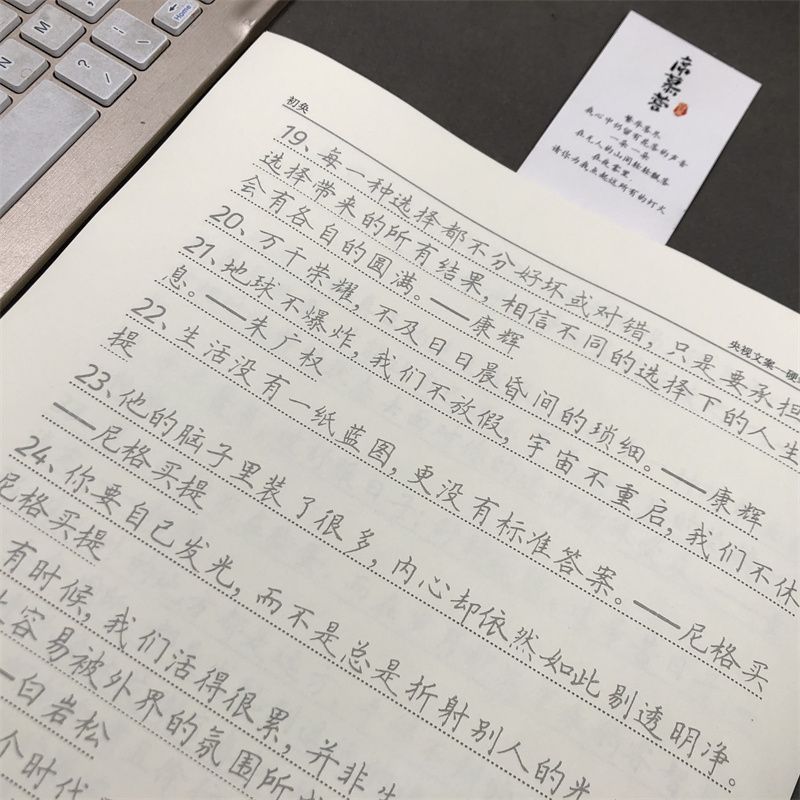 Home
?
/
.
,
M
N
席慕蓉
繁华落尽
我心中仍留有花落的声音
一朵 一朵
在无人的山间轻轻飘落
在夜雾里
请你为我点起这所有的灯火
初奂
央视文案一硬
19、每一种选择都不分好坏或对错，只是要承担
选择带来的所有结果，相信不同的选择下的人生
会有各自的圆满。——康辉
20、万千荣耀，不及日日晨昏间的琐细。——康辉
21、地球不爆炸，我们不放假，宇宙不重启，我们不休
息。——朱广权
22、生活没有一纸蓝图，更没有标准答案。——尼格买
提
23、他的脑子里装了很多，内心却依然如此剔透明净。
——尼格买提
24、你要自己发光，而不是总是折射别人的光
尼格买提
有时候，我们活得很累，并非生
容易被外界的氛围所
白岩松
个时代